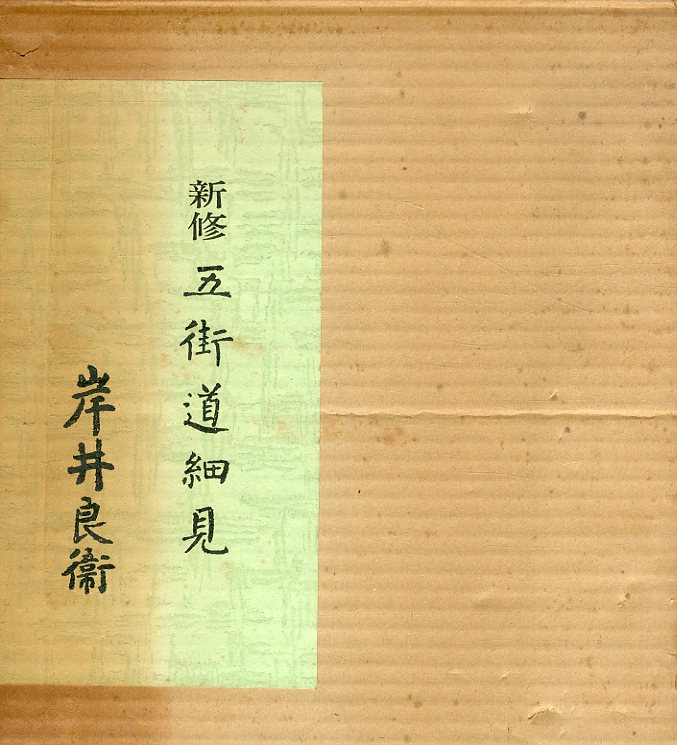 新修 五街道細見
岸井良衞